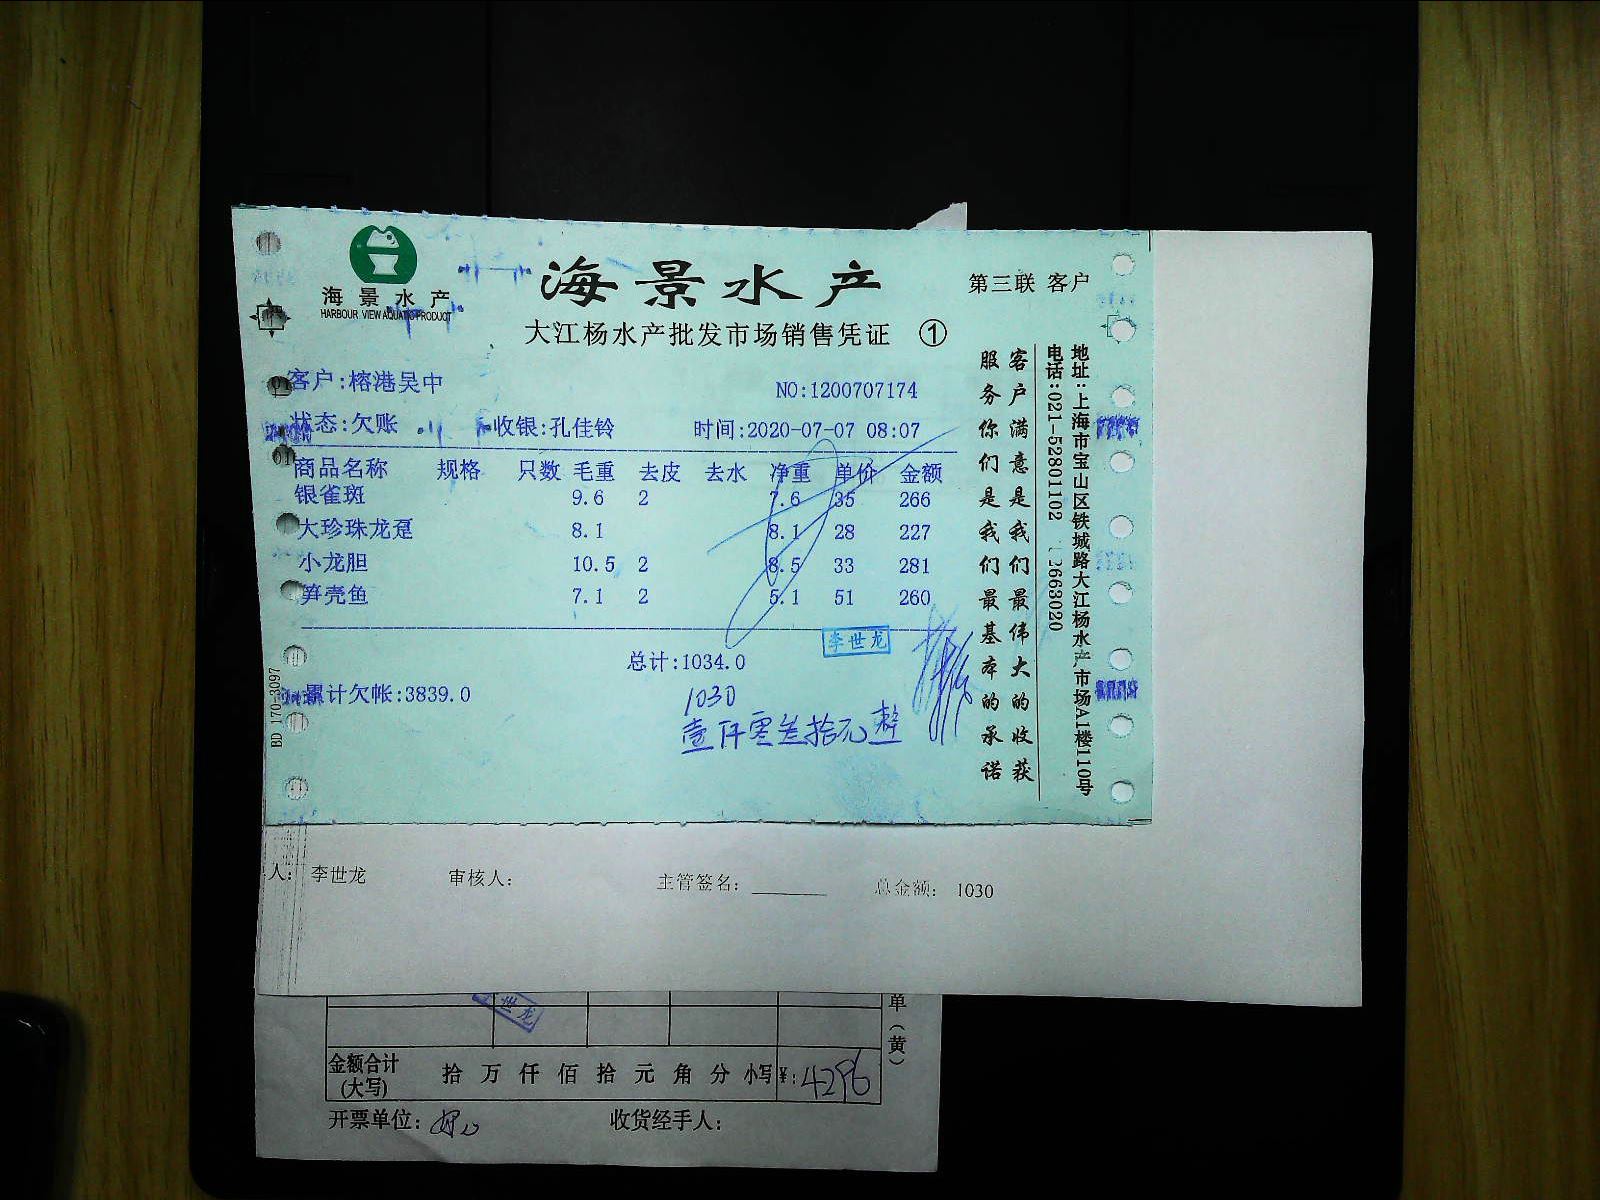 海景水产
HARBOUR VIEW AQUATIC PRODUCT
海景水产
第三联 客户
大江杨水产批发市场销售凭证 ①
客户:榕港吴中
NO:1200707174
状态:欠账 收银:孔佳铃 时间:2020-07-07 08:07
商品名称 规格 只数 毛重 去皮 去水 净重 单价 金额
银雀斑 9.6 2 7.6 35 266
大珍珠龙趸 8.1 8.1 28 227
小龙胆 10.5 2 8.5 33 281
笋壳鱼 7.1 2 5.1 51 260
李世龙
总计:1034.0
累计欠帐:3839.0
1030
壹仟零叁拾元整
客户满意是我们最伟大的收获
服务你们是我们最基本的承诺
地址:上海市宝山区铁城路大江杨水产市场A1楼110号
电话:021-52801102 2663020
BD 170-3097
人: 李世龙 审核人: 主管签名: 总金额: 1030
世龙
单(黄)
金额合计(大写) 拾 万 仟 佰 拾 元 角 分 小写¥:4296
开票单位: 收货经手人: